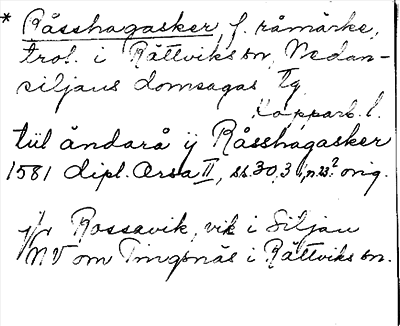 * Råsshagasker, f. råmärke,
trol. i Rättviks sn, Nedan-
siljans domsagas tg
Kopparb. l.
till ändarå ÿ Råsshagasker
1581 dipl. Orsa II, s. 30, 3 orig.
Jfr Rossavik, vik i Siljan
NV om Tingsnäs i Rättviks sn.